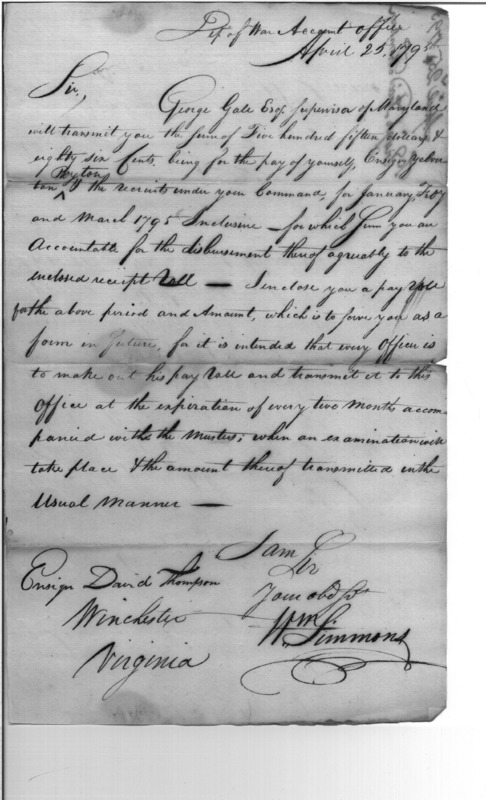 Dep. of War Accomt Office
April 25. 1795
Sir,
George Gale Esq. Supervisor of Maryland
will transmit you the sum of Five hundred fifteen dollars &
eighty six Cents, being for the pay of yourself, Ensign
Peytons & the recruits under your Command, for January, Feby
and March 1795 Inclusive — for which Sum you are
Accountable for the disbursement thereof agreably to the
enclosed receipt Roll — I enclose you a pay Roll
for the above period and Amount, which is to serve you as a
form in future, for it is intended that every Officer is
to make out his pay Roll and transmit it to this
Office at the expiration of every two Months accom-
panied with the Musters; when an examination will
take place & the amount thereof transmitted in the
Usual Manner —
I am
Sir
Your obd St
Wm Simmons
Ensign David Thompson
Winchester
Virginia